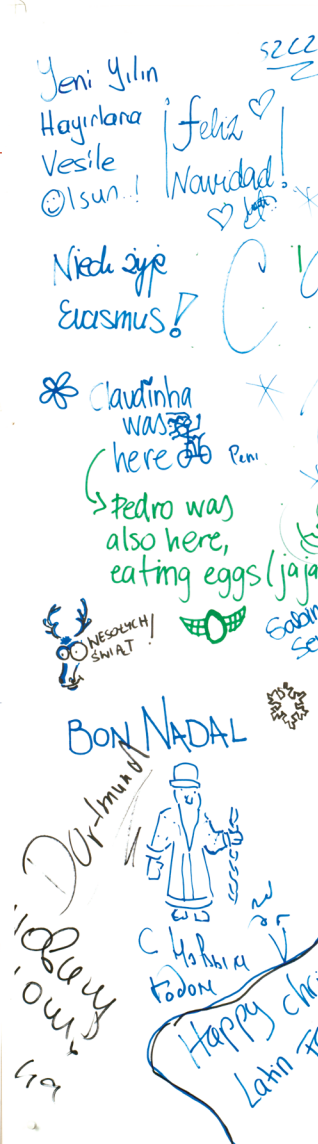 Yeni Yılın
Hayırlara
Vesile
Olsun..!
¡Feliz
Navidad!
Niech żyje
Erasmus!
Claudinha
was
here
Pedro was
also here,
eating eggs (jaja
WESOŁYCH
ŚWIĄT!
BON NADAL
Dortmund
С Новым
Годом
Happy Chri
Latin